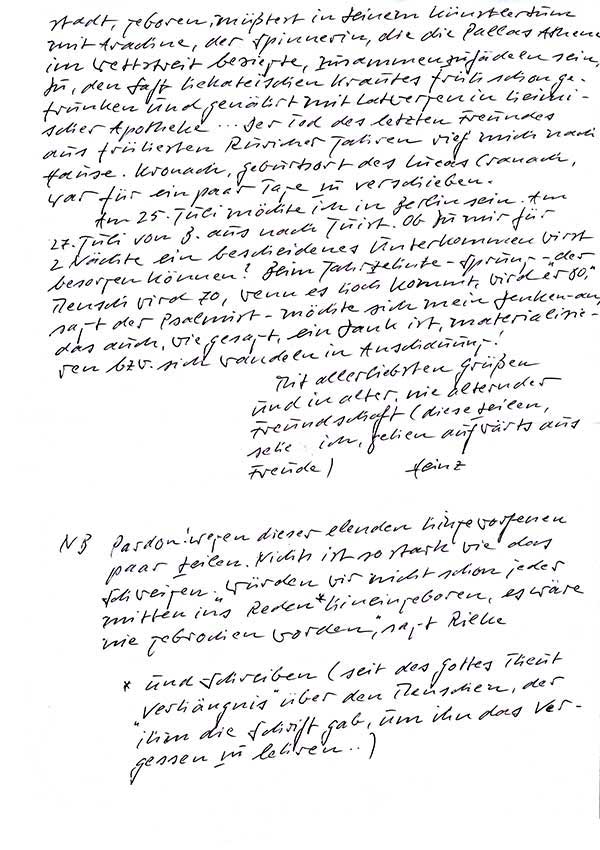 stadt, geboren, müßtest in deinem Künstlertum
mit Aradine, der Spinnerin, die die Pallas Athene
im Wettstreit besiegte, zusammenzufädeln sein,
Du, den Saft hekateischen Krautes früh schon ge-
trunken und genährt mit Latwergen in heimi-
scher Apotheke ... Der Tod des letzten Freundes
aus frühesten Jahren rief mich nach
Hause. Kronach, geburtsort des Lucas Cranach,
war für ein paar Tage zu verschieben.
Am 25. Juli möchte ich in Berlin sein. Am
27. Juli von B. aus nach Juist. Ob Du mir für
2 Nächte ein bescheidenes Unterkommen wirst
besorgen können? Beim Jahrzehnte-Sprung - "der
Mensch wird 70, wenn es hoch kommt, wird er 80,"
sagt der Psalmist - möchte sich mein Denken-an,
das auch, wie gesagt, ein Dank ist, materialisie-
ren bzw. sich wandeln in Anschauung!
Mit allerliebsten Grüßen
und in alter, nie alternder
Freundschaft (diese Zeilen,
sehe ich, gehen aufwärts aus
Freude) Heinz
NB Pardon! wegen dieser elenden hingeworfenen
paar Zeilen. Nichts ist so stark wie das
Schweigen. "Würden wir nicht schon jeder
mitten ins Reden* hineingeboren, es wäre
nie gebrochen worden", sagt Rilke
* und Schreiben (seit des Gottes Theut
"Verhängnis" über den Menschen, der
ihm die Schrift gab, um ihn das Ver-
gessen zu lehren..)